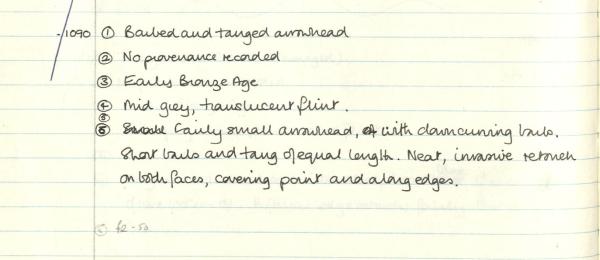 1090 ① Barbed and tanged arrowhead
② No provenance recorded
③ Early Bronze Age
④ Mid grey, translucent flint.
⑤ Fairly small arrowhead, with downcurving barbs.
Short barbs and tang of equal length. Neat, invasive retouch
on both faces, covering point and along edges.
⑥ £2-50